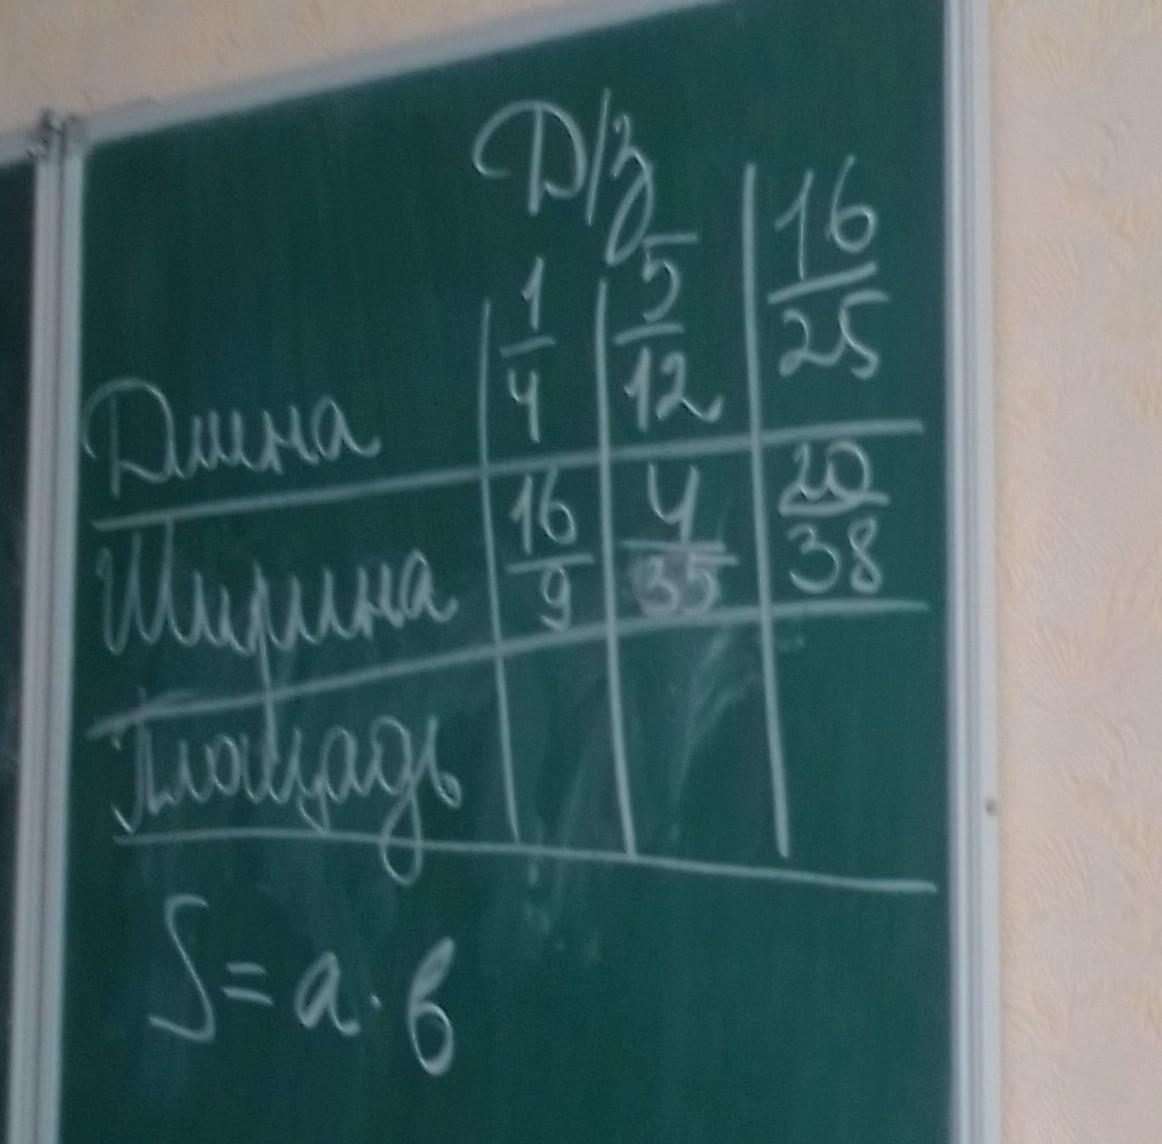 Д/з
Длина 1/4 5/12 16/25
Ширина 16/9 4/35 20/38
Площадь
S = a · b